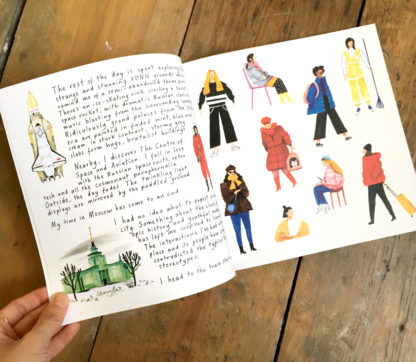 The rest of the day is spent exploring
strange and stunning VDNH grounds
remind me of a semi-abandoned theme
There's an ice-skating rink circling a
space rocket, with dramatic Russian classical
music blasting from the surrounding
Ridiculously grand palaces from the
era are painted in faded mint, blue and
cream. In stark contrast, ground grey
slabs form huge, brutalist buildings
Nearby, I discover The Centre of
Space and Aviation. I fall in love
with the Russian spacesuits, retro
tech and all the cosmonaut paraphernalia
Outside, the day fades. The twinkling light
displays are mirrored by the puddled ground
My time in Moscow has come to an end
I had no idea what to expect of
city. Something about the
epic history and youthful
has left me inspired
The interactions I've had
place and its people have
contradicted the typical
stereotypes.
I head to the train